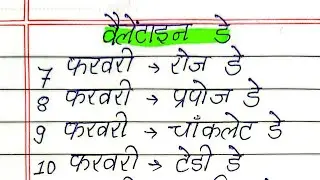 वैलेंटाइन डे
7 फरवरी → रोज डे
8 फरवरी → प्रपोज डे
9 फरवरी → चॉकलेट डे
10 फरवरी → टेडी डे